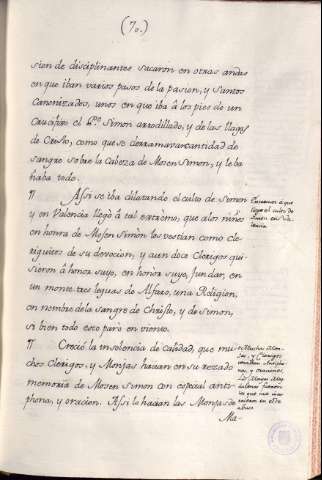 (70.)
sion de disciplinantes sacaron en otras andas
en que iban varios pasos de la pasion, y Santos
Canonizados, unos en que iba â los pies de un
Crucifixo el Simon arrodillado, y de las llagas
de Cristo, como que se derramava cantidad de
sangre sobre la Cabeza de Mosen Simon, y le ba
haba todo.
¶ Assi se iba dilatando el culto de Simon
y en Valencia llegò â tal extremo, que a los niños
en honra de Mosen Simòn los vestian como Cle-
riguitos de su devocion, y aun doce Clerigos qui-
sieron â honra suyo, en honra suyo, fundar, en
un monte tres leguas de una Religion,
en nombre de la sangre de Christo, y de Simon,
si bien todo esto parò en viento.
¶ Creciò la insolencia de Calidad, que mu-
chos Clerigos, y Monjas hacian en su rezado
memoria de Mosen Simon con especial anti-
phona, y oracion. Assi lo hacian las Monjas de
Ma-
Extremo â que
llegò el culto de
Simon en Va-
lencia
Muchas Mon-
jas, y Clerigos
y oraciones.
Las Monjas Mag-
dalenas fueron
las que mas
en el